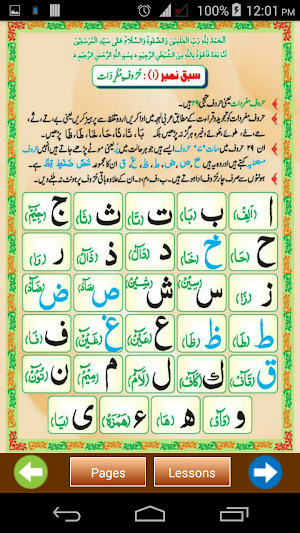 100% 12:01 PM
اَلْحَمْدُ لِلّٰهِ رَبِّ الْعٰلَمِیْنَ وَالصَّلٰوةُ وَالسَّلَامُ عَلٰی سَیِّدِ الْمُرْسَلِیْنَ
اَمَّا بَعْدُ فَاَعُوْذُ بِاللّٰهِ مِنَ الشَّیْطٰنِ الرَّجِیْمِ بِسْمِ اللّٰهِ الرَّحْمٰنِ الرَّحِیْمِ
سبق نمبر (۱): حُرُوفِ مُفْرَدَات
حروفِ مفردات یعنی حروفِ تہجی ۲۹ ہیں۔
حروفِ مفردات کو تجوید و قراءت کے مطابق عربی لہجہ میں ادا کریں اردو تلفظ سے پرہیز کریں یعنی بے، تے، ثے،
حے، خے، طوئے، ظوئے وغیرہ ہرگز نہ پڑھیں بلکہ بَا، تَا، ثَا، حَا، خَا، طَا، ظَا پڑھیں۔
ان ۲۹ حروف میں سات "۷" حروف ایسے ہیں جو ہر حالت میں پُر یعنی موٹے پڑھے جاتے ہیں انہیں حروفِ
مستعلیہ کہتے ہیں اور وہ یہ ہیں خ، ص، ض، ط، ظ، غ، ق ان کا مجموعہ خُصَّ ضَغْطٍ قِظْ ہے۔
ہونٹوں سے صرف چار حُرُوف ادا ہوتے ہیں ب، ف، م، و ان کے علاوہ باقی حُرُوف پر ہونٹ نہ ہلنے دیں۔
ا (اَلِفْ) ب (بَا) ت (تَا) ث (ثَا) ج (جِیْمْ)
ح (حَا) خ (خَا) د (دَالْ) ذ (ذَالْ) ر (رَا)
ز (زَا) س (سِیْنْ) ش (شِیْنْ) ص (صَادْ) ض (ضَادْ)
ط (طَا) ظ (ظَا) ع (عَیْنْ) غ (غَیْنْ) ف (فَا)
ق (قَافْ) ك (كَافْ) ل (لَامْ) م (مِیْمْ) ن (نُوْنْ)
و (وَاوْ) ھ (هَا) ء (هَمْزَهْ) ی (یَا)
Pages Lessons